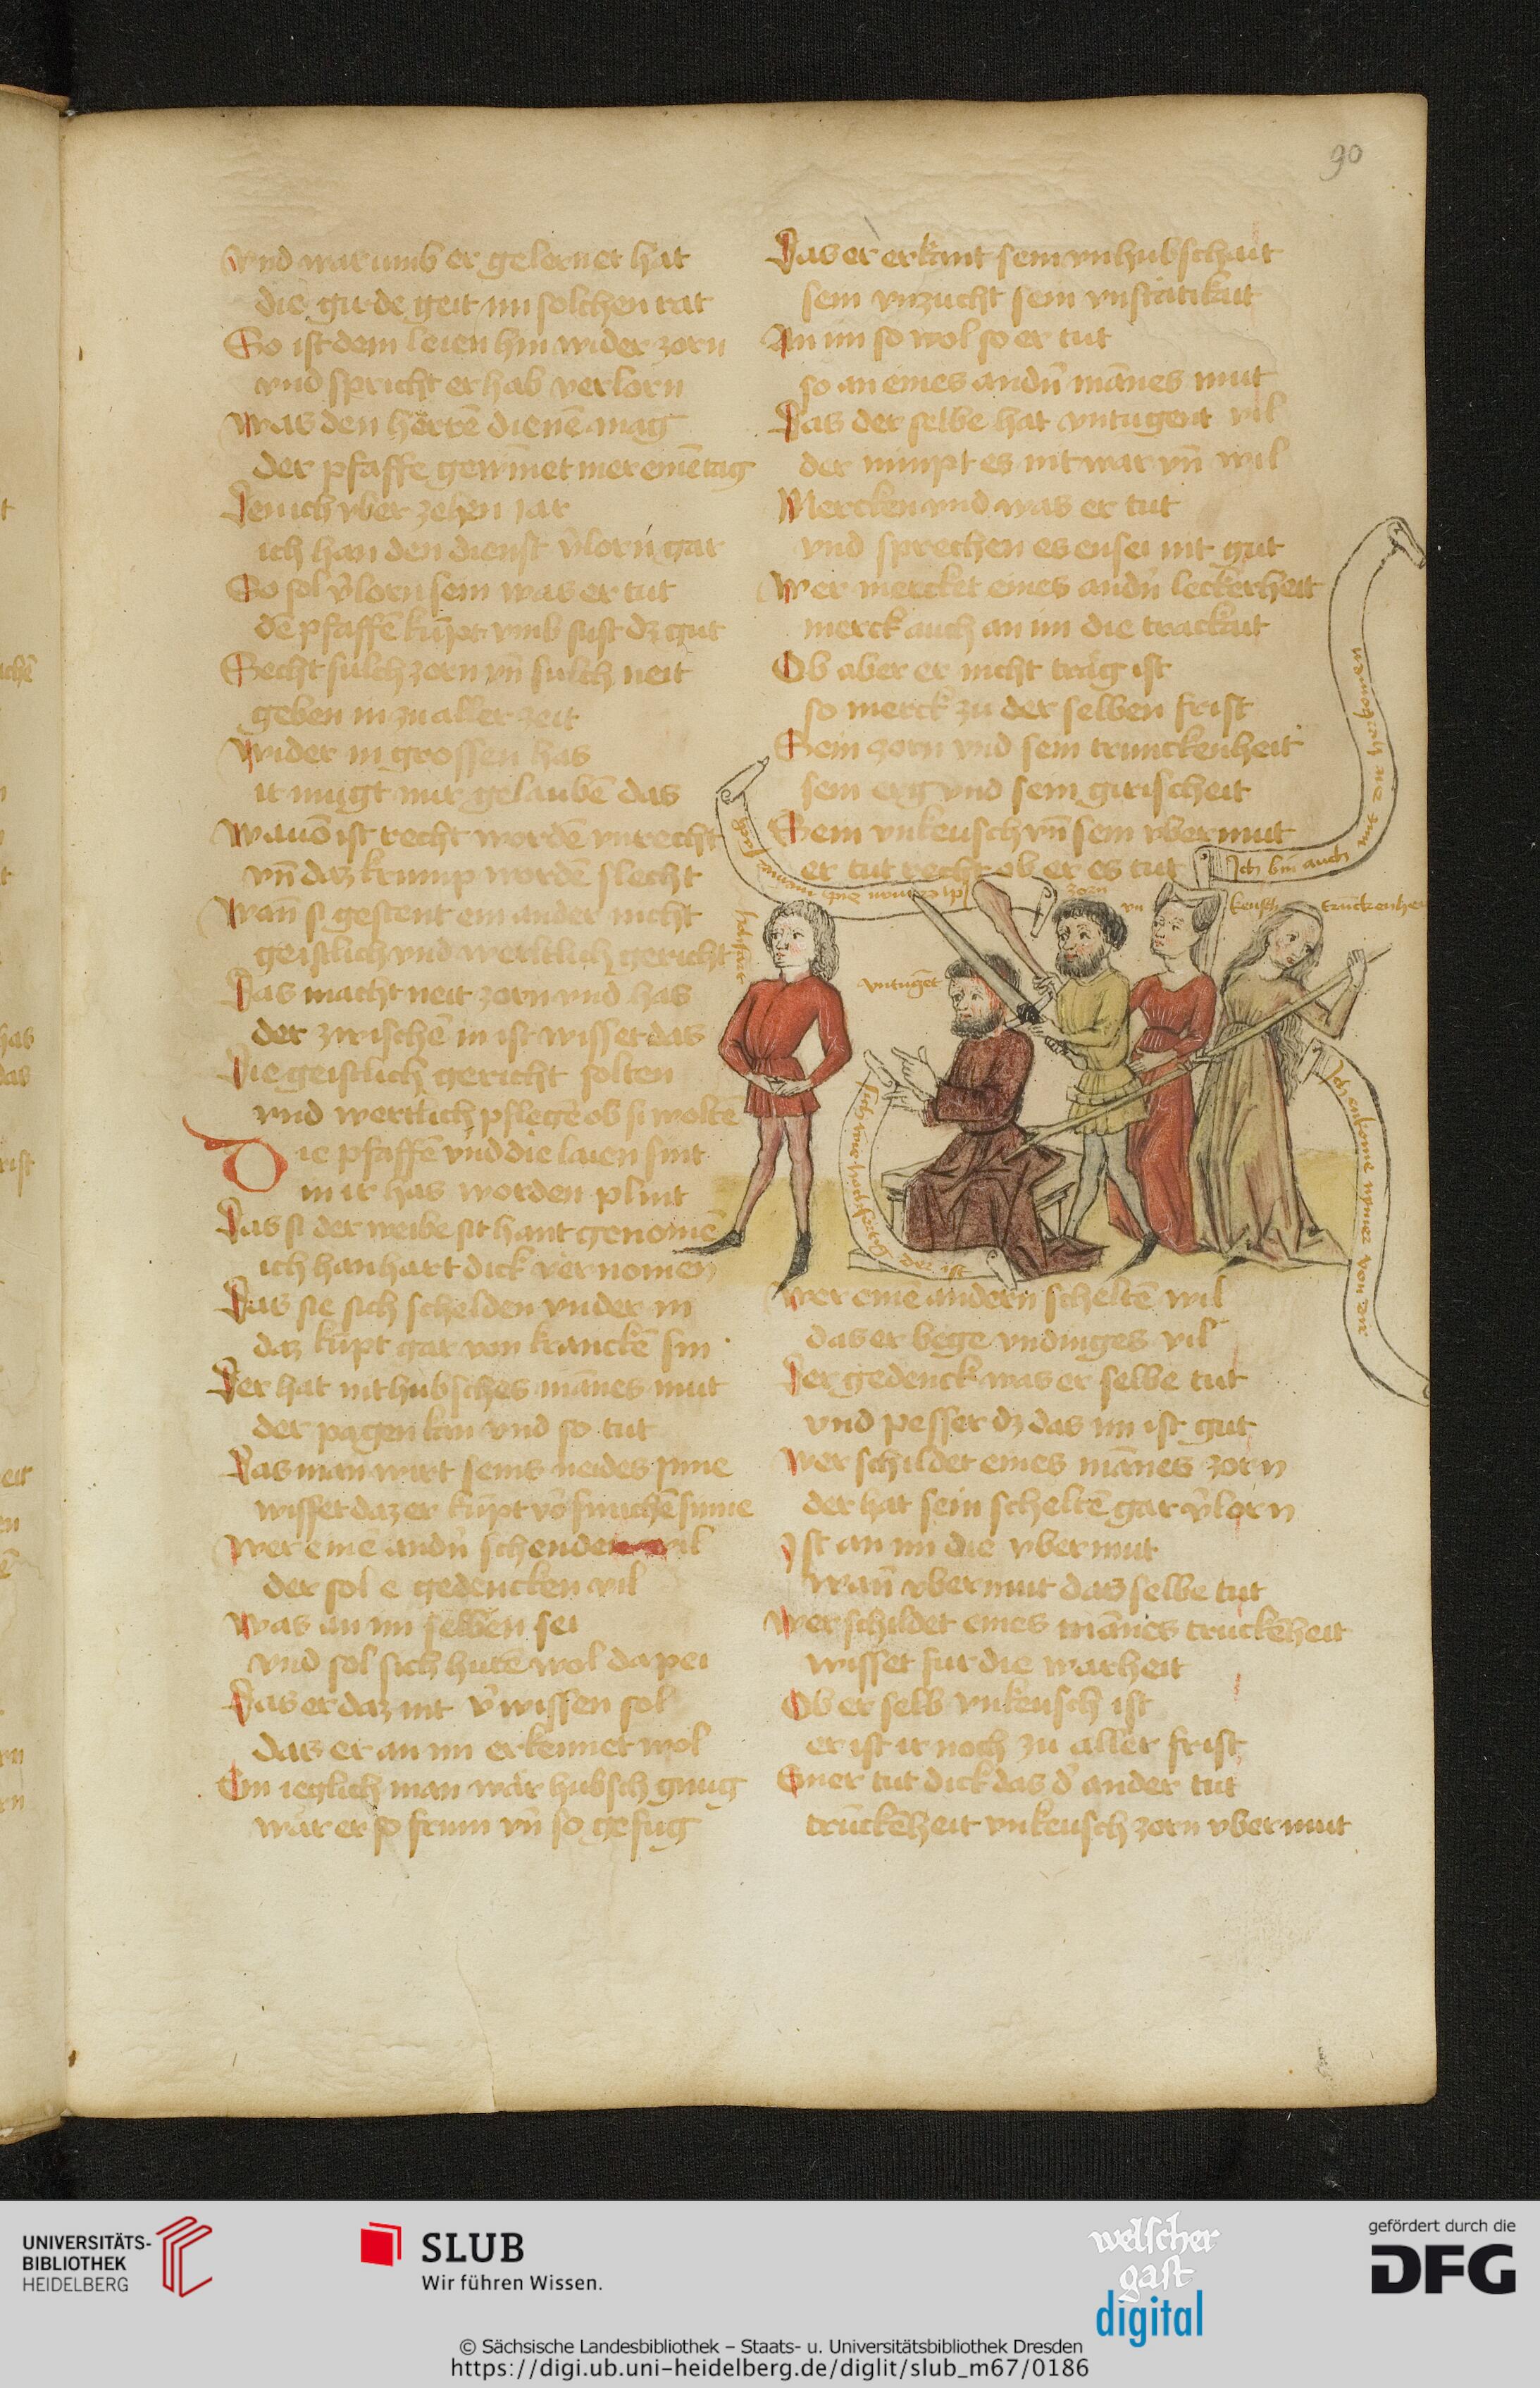 90
Vnd warumb er gelernet hat
die girde geit im solchen rat
So ist dem leien hin wider zorn
vnd spricht er hab verlorn
Was den herrē dienē mag
der pfaffe gewinnet mer einē tag
Den ich vber zehen jar
ich han den dienst v̉lorn gar
So sol v̉lorn sein was er tut
dē pfaffē kūpt vmb sust dz gut
Secht sulch zorn vn̄ sulch neit
geben in zu aller zeit
Wider in grossen has
ir mugt mir gelaubē das
ist recht wordē vnrecht
vn̄ daz krump wordē slecht
Wan̄ si gestent ein ander nicht
geistlich vnd werltlich gericht
Das macht neit zorn vnd has
der zwischē in ist wisset das
Die geistlich gericht solten
vnd werltlich pflegē ob si woltē
Die pfaffē vnd die laien sint
in ir has worden plint
Das si der weibe sit hant genomē
ich han hart dick vernomen
Das sie sich schelden vnder in
daz kūpt gar von kranckē sin
Der hat nit hubsches mānes mut
der pagen kan vnd so tut
Das man wirt seins neides inne
wisset daz er kūpt vō sinne
Wer einē andn̉ schenden wil
der sol e gedencken vil
Was an im selben sei
vnd sol sich hutē wol da pei
Das er daz nit v̉wissen sol
das er an im erkennet wol
Ein ieglich man wär hubsch gnug
wär er so frum vn̄ so gefug
Das er erkant sein vnhubschait
sein vnzucht sein vnstätikait
An im so wol so er tut
so an eines andn̉ mānes mut
Das der selbe hat vntugent vil
der nimpt es nit war vn̄ wil
Mercken vnd was er tut
vnd sprechen es ensei nit gut
Wer mercket eines andn̉ leckerheit
merck auch an im die trackait
Ob aber er nicht träg ist
so merck zu der selben frist
Sein zorn vnd sein trunckenheit
sein erg vnd sein girischeit
Sein vnkeusch vn̄ sein vbermut
er tut recht ob er es tut
Ich bin auch
zorn
vn
keusch
truckenhei
hohfart
vntugēt
der ist
Ich enkome nymer von
Wer eine andern scheltē wil
das er bege vndinges vil
Der gedenck was er selbe tut
vnd pesser dz das im ist gut
Wer schildet eines mānes zorn
der hat sein scheltē gar v̉lorn
Ist an im die vbermut
wan̄ vbermut das selbe tut
Wer schildet eines mānes truckēheit
wisset fur die warheit
Ob er selb vnkeusch ist
er ist ir noch zu aller frist
Einer tut dick das d̉ ander tut
trūckēheit vnkeusch zorn vbermut
UNIVERSITÄTS-
BIBLIOTHEK
HEIDELBERG
SLUB
Wir führen Wissen.
welscher
gast
digital
gefördert durch die
DFG
© Sächsische Landesbibliothek – Staats- u. Universitätsbibliothek Dresden
https://digi.ub.uni-heidelberg.de/diglit/slub_m67/0186